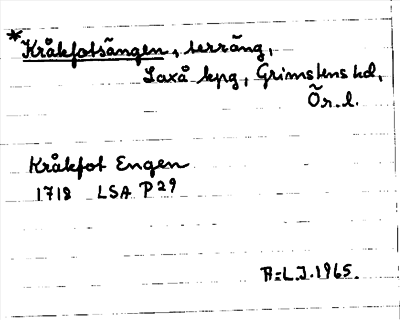 *Kråkfotsängen, terräng,
Laxå kpg, Grimstens hd,
Ör. l.
Kråkfot Engen
1718 LSA P29
R=L.J. 1965.